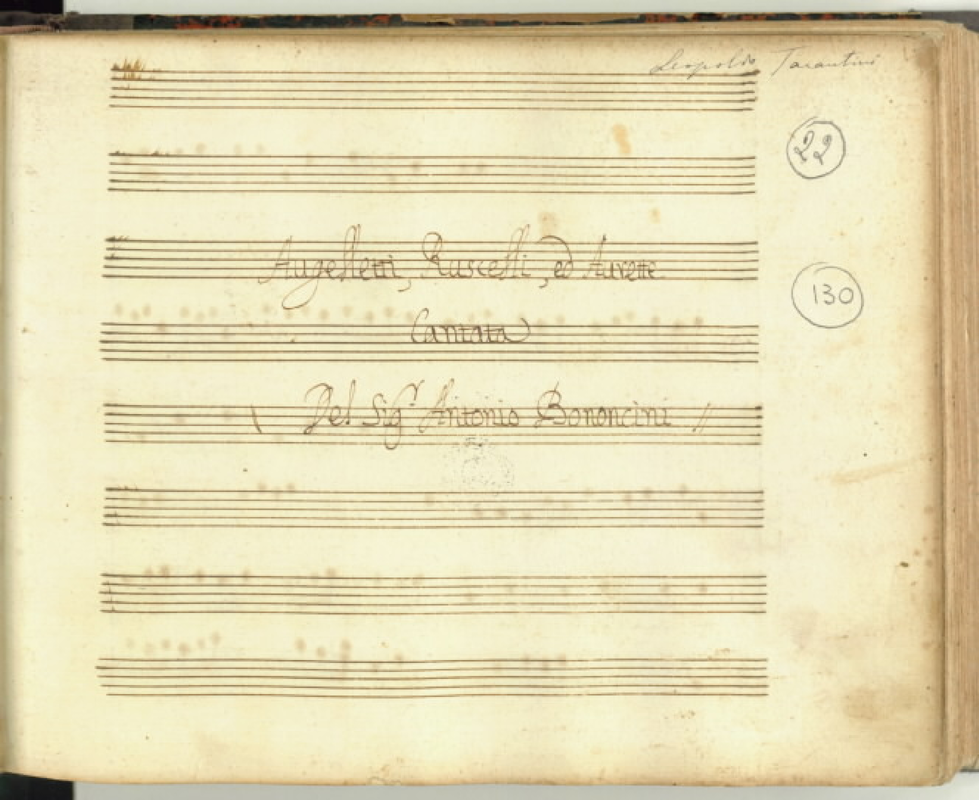 Leopoldo Tarantini
22
Augelletti, Ruscelli, ed Aurette
Cantata
Del Sig.r Antonio Bononcini //
130